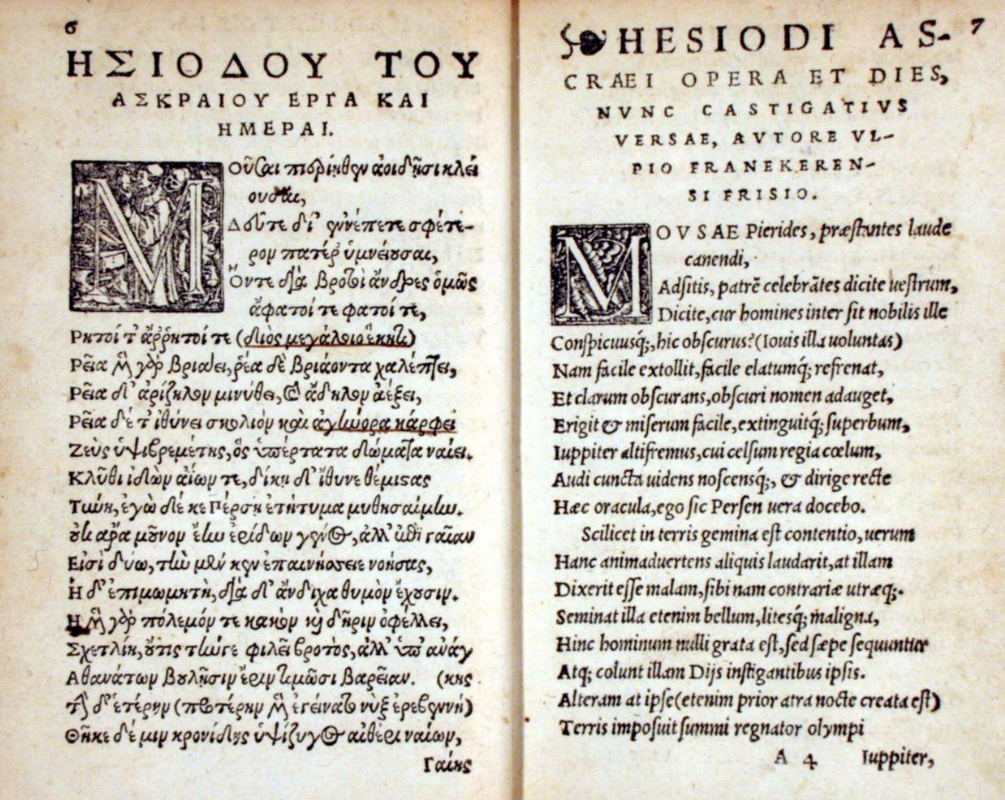 6
ΗΣΙΟΔΟΥ ΤΟΥ
ΑΣΚΡΑΙΟΥ ΕΡΓΑ ΚΑΙ
ΗΜΕΡΑΙ.
Μοῦσαι πιερίηθεν ἀοιδῇσι κλεί
ουσαι,
Δεῦτε δί' ἐννέπετε σφέτε-
ρον πατέρ' ὑμνείουσαι,
Ὅντε διὰ βροτοὶ ἄνδρες ὁμῶς
ἄφατοί τε φατοί τε,
Ρητοί τ' ἄρρητοί τε (διὸς μεγάλοιο ἕκητι)
Ρεῖα μὲν γὰρ βριάει, ῥέα δὲ βριάοντα χαλέπτει,
Ρεῖα δ' ἀρίζηλον μινύθει, καὶ ἄδηλον ἀέξει,
Ρεῖα δέ τ' ἰθύνει σκολιὸν καὶ ἀγήνορα κάρφει
Ζεὺς ὑψιβρεμέτης, ὃς ὑπέρτατα δώματα ναίει.
Κλῦθι ἰδὼν ἀΐων τε, δίκῃ δ' ἴθυνε θέμιστας
Τύνη, ἐγὼ δέ κε Πέρσῃ ἐτήτυμα μυθησαίμην.
οὐκ ἄρα μοῦνον ἔην ἐρίδων γένος, ἀλλ' ἐπὶ γαῖαν
Εἰσὶ δύω, τὴν μέν κεν ἐπαινήσειε νοήσας,
Ἡ δ' ἐπιμωμητὴ, διὰ δ' ἄνδιχα θυμὸν ἔχουσιν.
Ἡ μὲν γὰρ πόλεμόν τε κακὸν καὶ δῆριν ὀφέλλει,
Σχετλίη, οὔτις τήν γε φιλεῖ βροτὸς, ἀλλ' ὑπ' ἀνάγ
Ἀθανάτων βουλῇσιν ἔριν τιμῶσι βαρεῖαν. (κης
τὴν δ' ἑτέρην (προτέρην μὲν ἐγείνατο νὺξ ἐρεβεννὴ)
Θῆκε δέ μιν κρονίδης ὑψίζυγος αἰθέρι ναίων,
Γαίης
7
HESIODI AS-
CRAEI OPERA ET DIES,
NVNC CASTIGATIVS
VERSAE, AVTORE VL-
PIO FRANEKEREN-
SI FRISIO.
MOVSAE Pierides, præstantes laude
canendi,
Adsitis, patrē celebrātes dicite uestrum,
Dicite, cur homines inter sit nobilis ille
Conspicuusq;, hic obscurus? (Iouis illa uoluntas)
Nam facile extollit, facile elatumq; refrenat,
Et clarum obscurans, obscuri nomen adauget,
Erigit & miserum facile, extinguitq; superbum,
Iuppiter altifremus, cui celsum regia cœlum,
Audi cuncta uidens noscensq;, & dirige recte
Hæc oracula, ego sic Persen uera docebo.
Scilicet in terris gemina est contentio, uerum
Hanc animaduertens aliquis laudarit, at illam
Dixerit esse malam, sibi nam contrariæ utræq;.
Seminat illa etenim bellum, litesq; maligna,
Hinc hominum nulli grata est, sed sæpe sequuntur
Atq; colunt illam Dijs instigantibus ipsis.
Alteram at ipse (etenim prior atra nocte creata est)
Terris imposuit summi regnator olympi
A 4 Iuppiter,